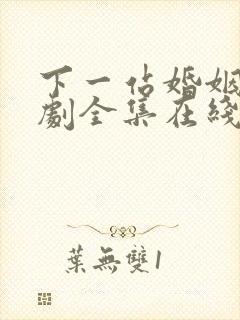 下一站婚姻
劇全集在綫
葉無雙1